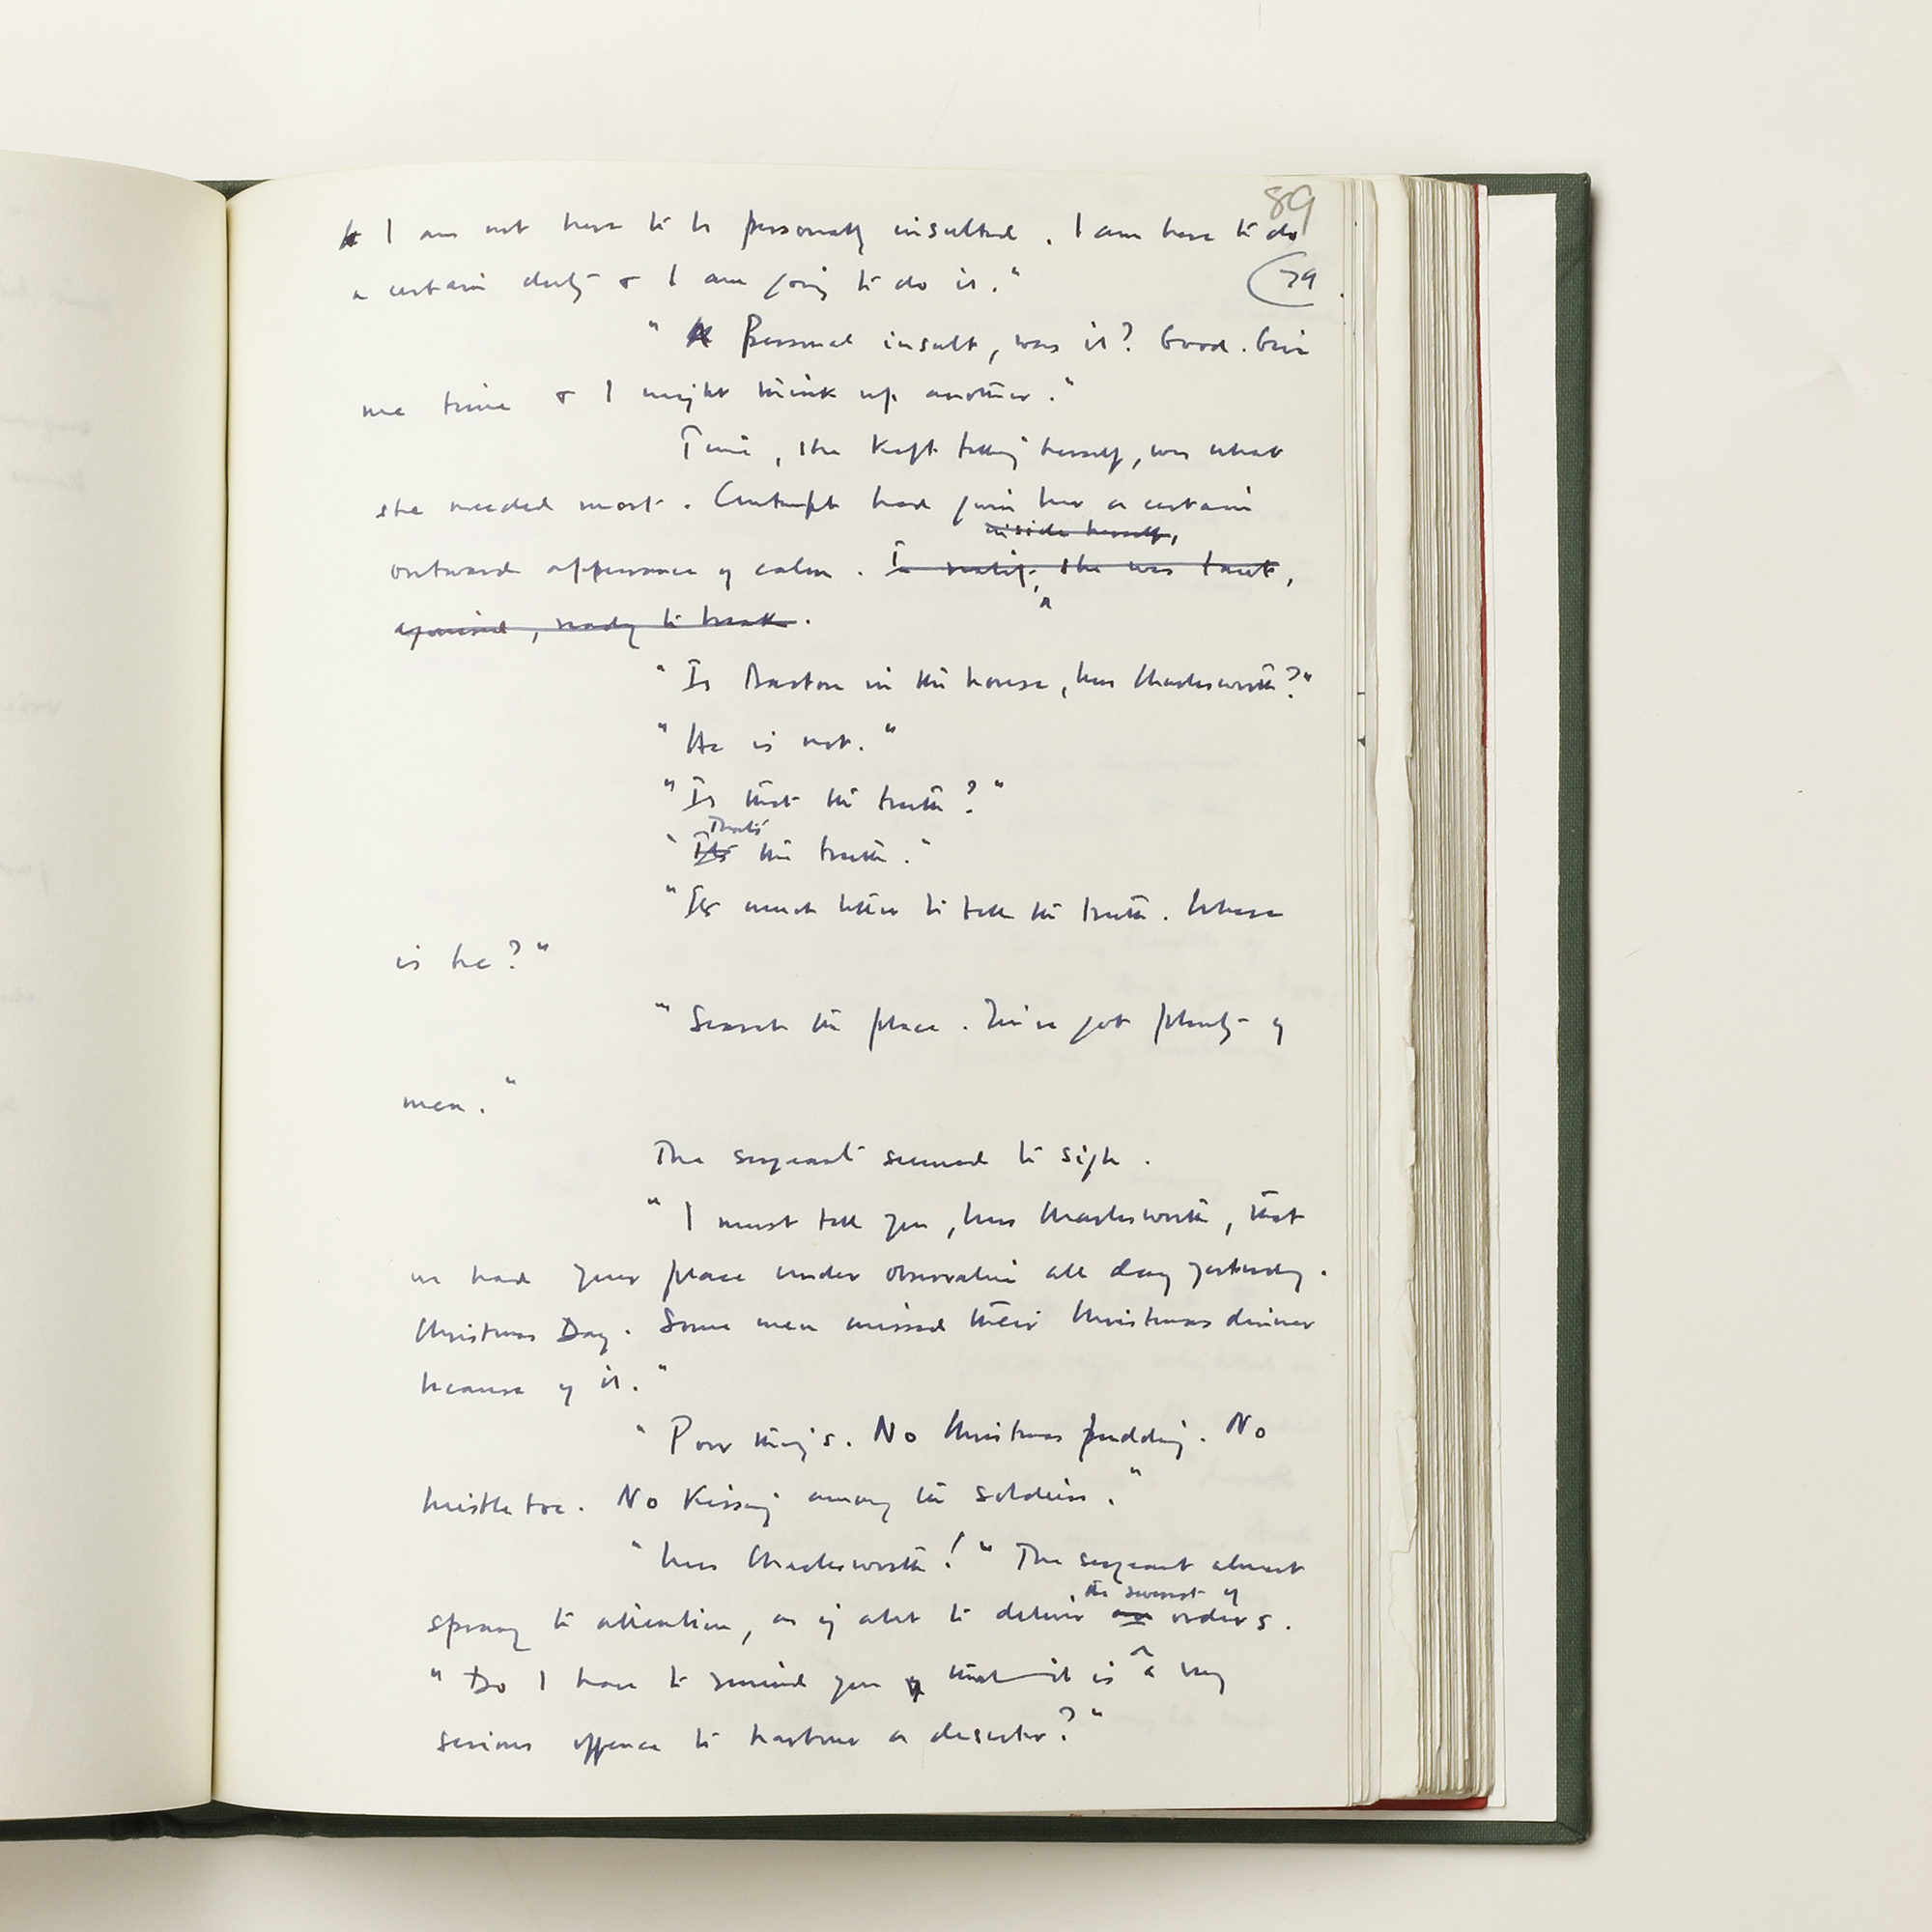 89
I am not here to be personally insulted. I am here to do
a certain duty & I am going to do it."
79
" Personal insult, was it? Good. Give
me time & I might think up another."
Time, she kept telling herself, was what
she needed most. Contempt had given her a certain
inside herself,
outward appearance of calm. In reality, she was taut,
ready to break.
"Is Barton in the house, Mrs Charlesworth?"
"He is not."
"Is that the truth?"
That's
"It's the truth."
"It's much better to tell the truth. Where
is he?"
"Search the place. You've got plenty of
men."
The sergeant seemed to sigh.
"I must tell you, Mrs Charlesworth, that
we had your place under observation all day yesterday.
Christmas Day. Some men missed their Christmas dinner
because of it."
"Poor things. No Christmas pudding. No
mistletoe. No kissing among the soldiers."
"Mrs Charlesworth!" The sergeant almost
the severest of
sprang to attention, as if about to deliver an orders.
"Do I have to remind you that it is a very
serious offence to harbour a deserter?"